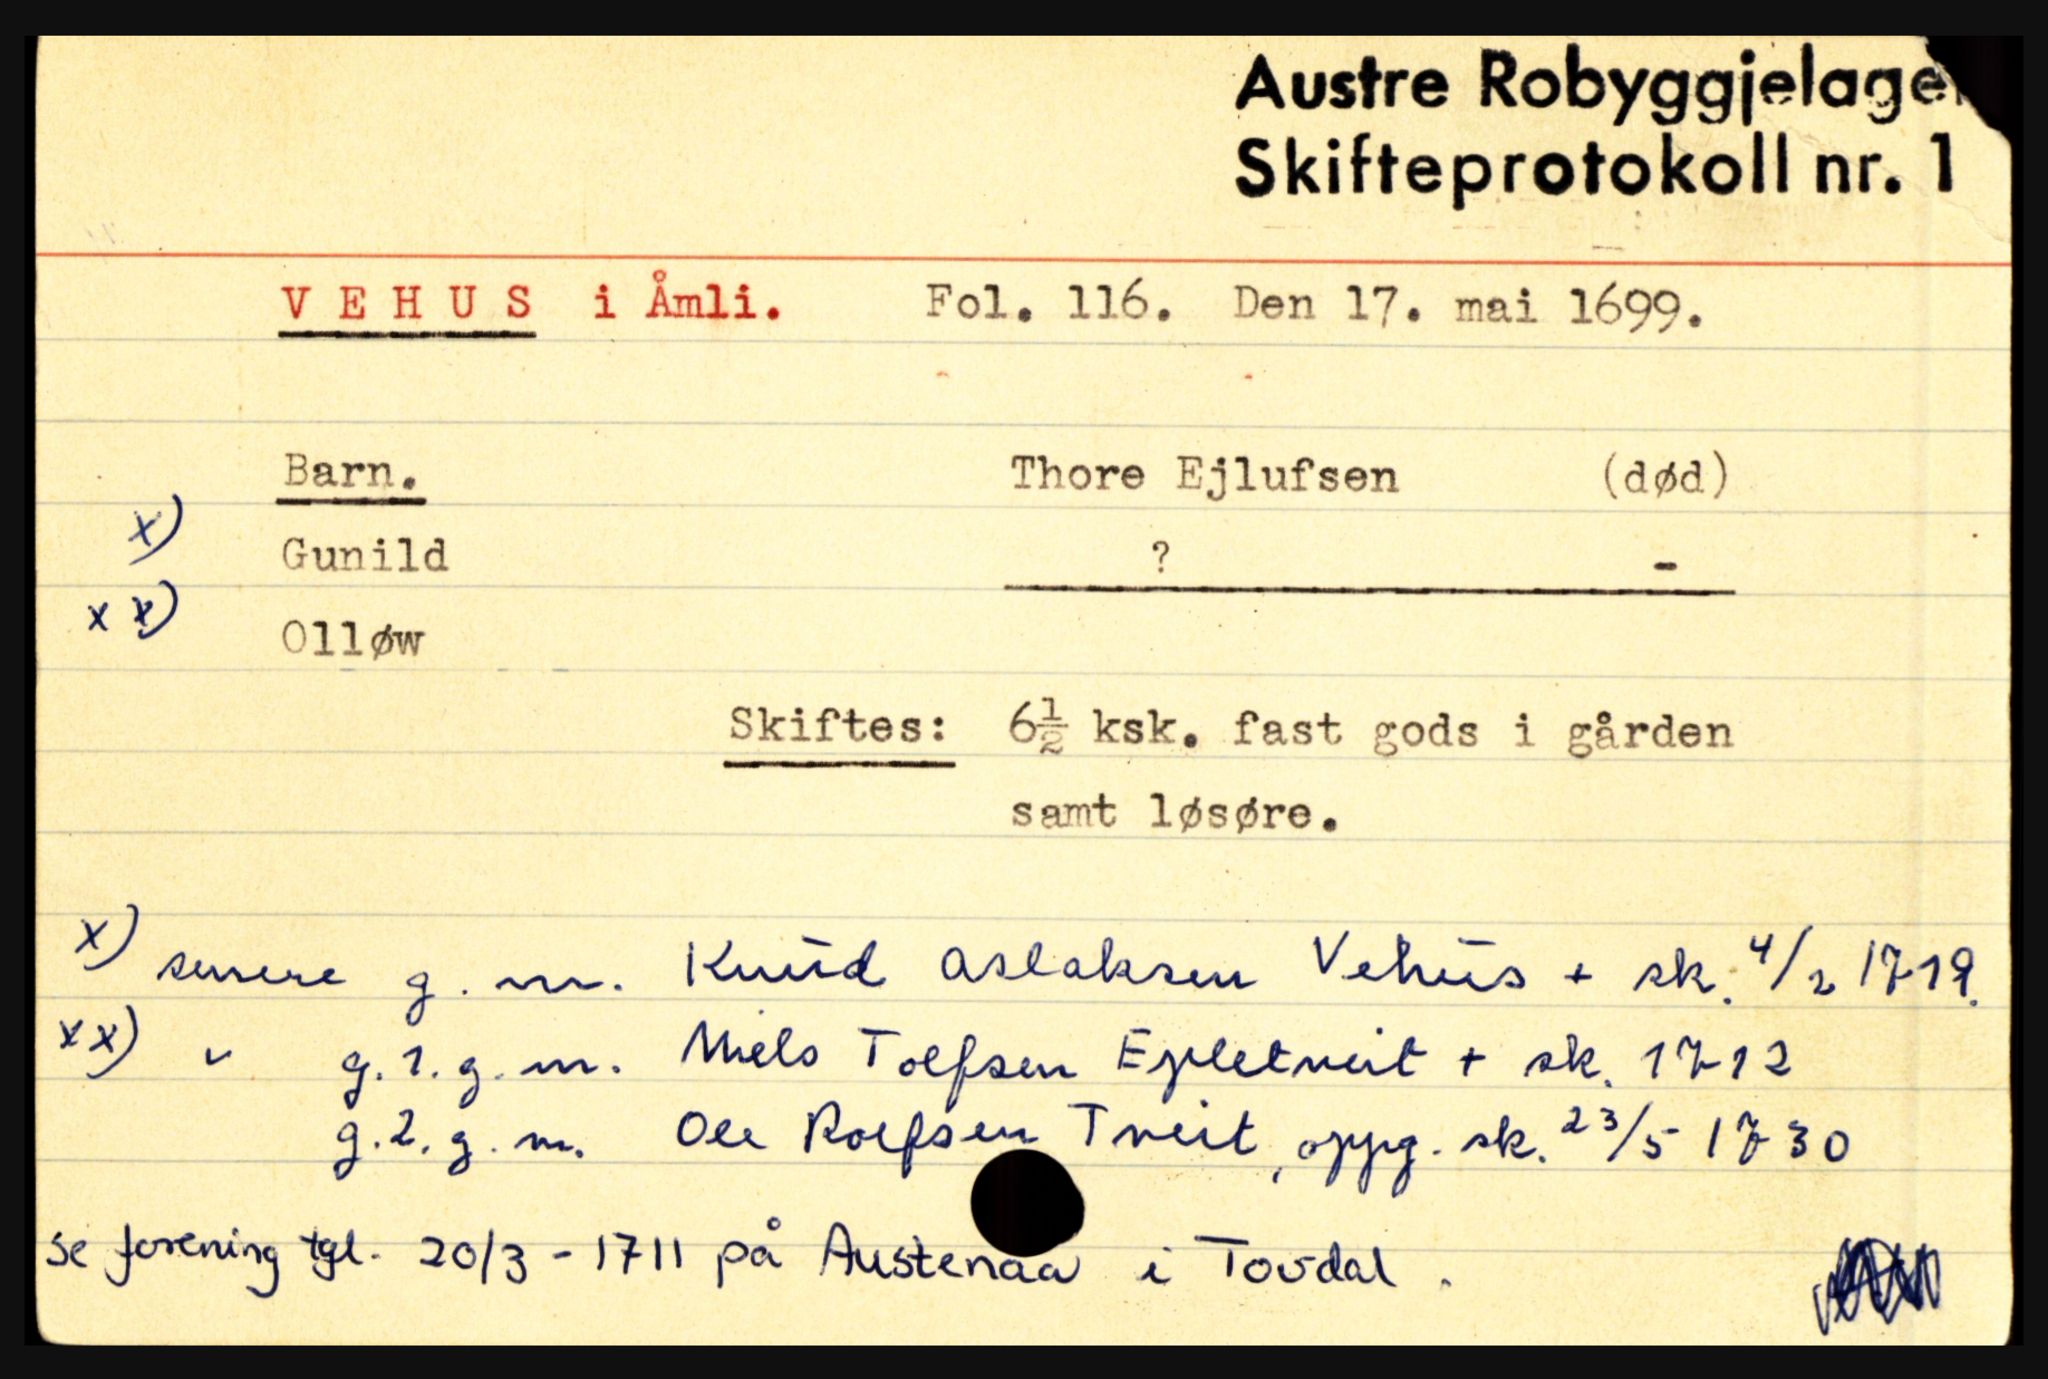 Austre Robyggjelage
Skifteprotokoll nr. 1
VEHUS i Åmli. Fol. 116. Den 17. mai 1699.
Barn. Thore Ejlufsen (død)
x) Gunild ? -
xx) Olløw
Skiftes: 6½ ksk. fast gods i gården
samt løsøre.
x) senere g. m. Knud Aslaksen Vehus + sk. 4/2 1719.
xx) " g. 1. g. m. Niels Tolfsen Epletveit + sk. 1712
g. 2. g. m. Ole Rolfsen Tveit, oppg. sk. 23/5 1730
se forening tgl. 20/3 - 1711 på Austenaa i Tovdal.